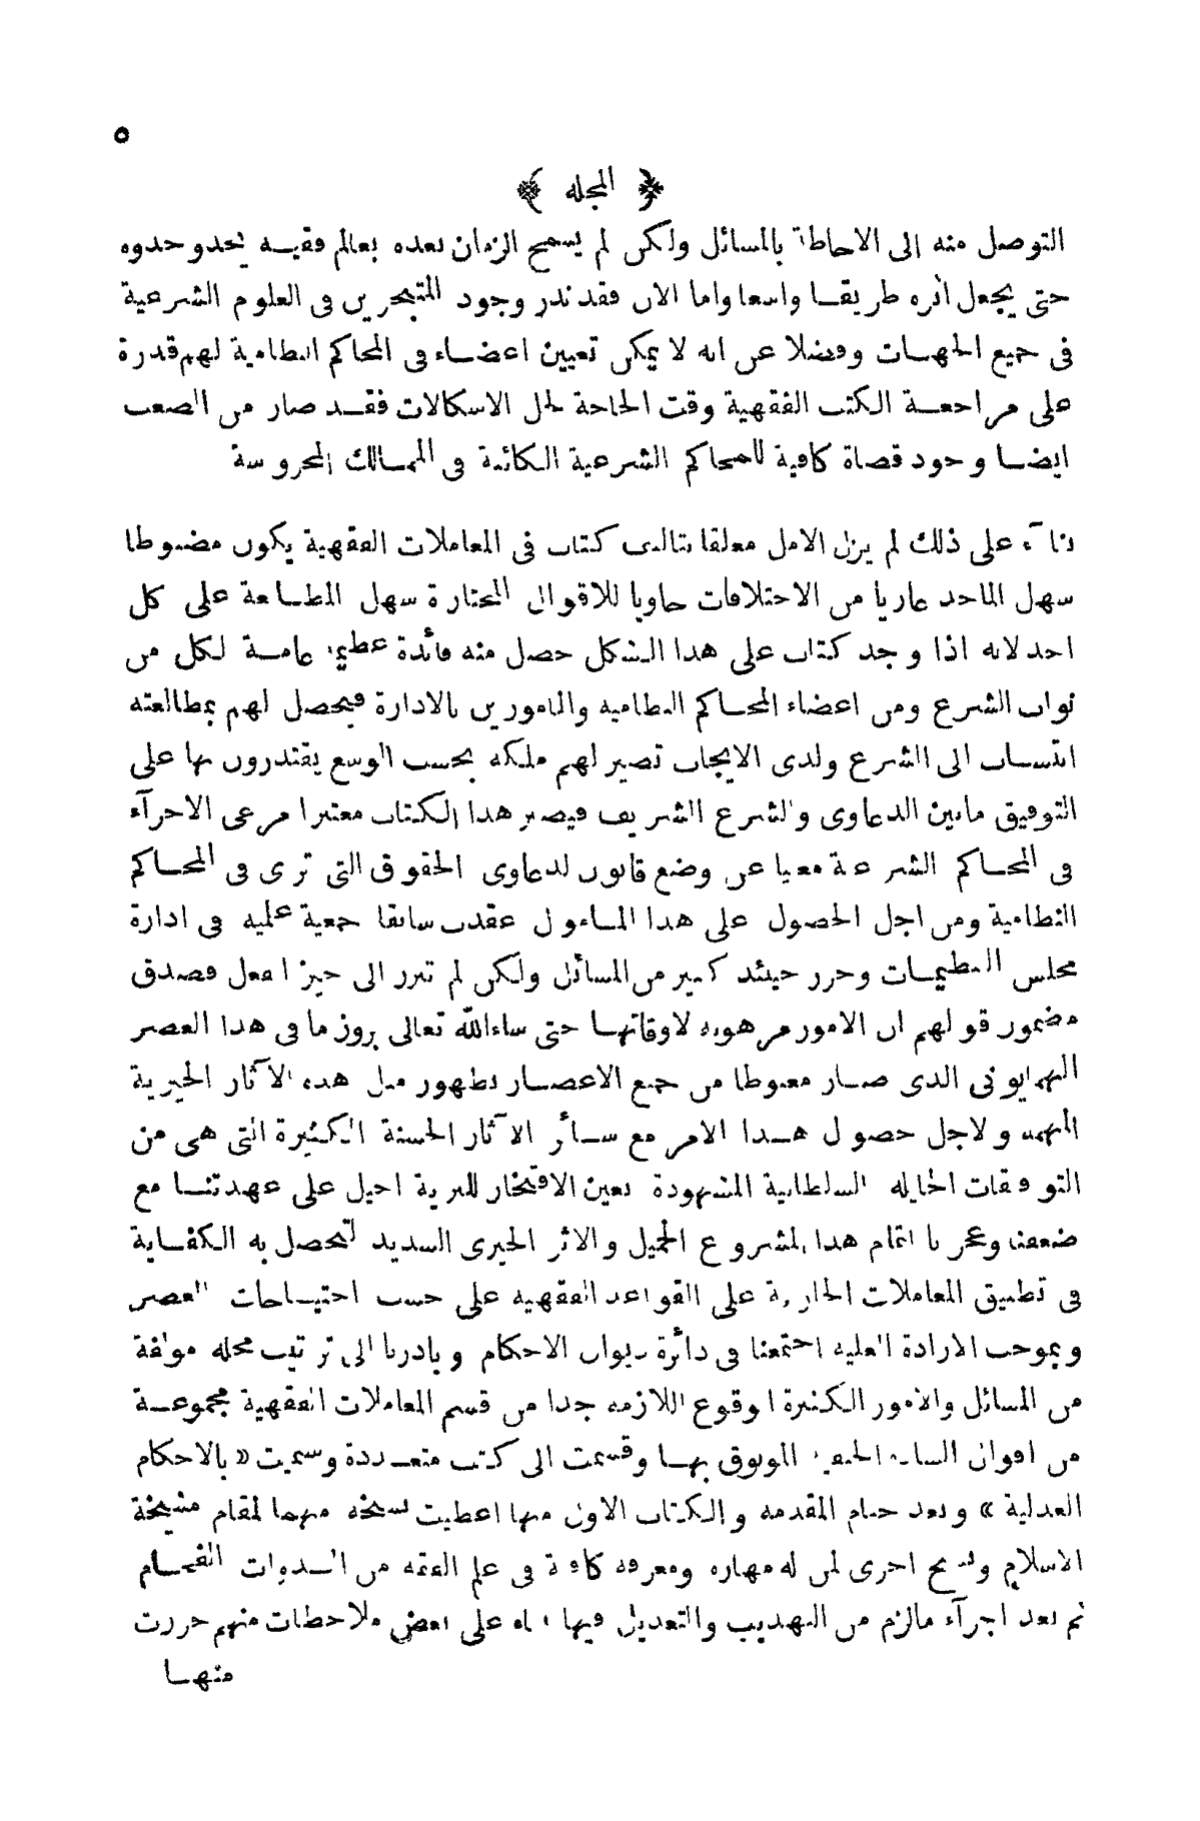 ٥
﴿ المجله ﴾
التوصل منه الى الاحاطة بالمسائل ولكن لم يسمح الزمان بعده بعالم فقيه يحدو حدوه
حتى يجعل اثره طريقا واسعا واما الان فقد ندر وجود المتبحرين فى العلوم الشرعية
فى جميع الجهات وفضلا عن انه لا يمكن تعيين اعضاء فى المحاكم النظامية لهم قدرة
على مراجعة الكتب الفقهية وقت الحاجة لحل الاشكالات فقد صار من الصعب
ايضا وجود قضاة كافية للمحاكم الشرعية الكائنة فى الممالك المحروسة
بناآء على ذلك لم يزل الامل معلقا بتاليف كتاب فى المعاملات الفقهية يكون مضبوطا
سهل الماخذ عاريا من الاختلافات حاويا للاقوال المختارة سهل المطالعة على كل
احد لانه اذا وجد كتاب على هذا الشكل حصل منه فائدة عظيمة عامة لكل من
نواب الشرع ومن اعضاء المحاكم النظاميه والمامورين بالادارة فيحصل لهم بمطالعته
انتساب الى الشرع ولدى الايجاب تصير لهم ملكه بحسب الوسع يقتدرون بها على
التوفيق مابين الدعاوى والشرع الشريف فيصير هذا الكتاب معتبرا مرعى الاجرآء
فى المحاكم الشرعية مغنيا عن وضع قانون لدعاوى الحقوق التى ترى فى المحاكم
النظامية ومن اجل الحصول على هذا المامول عقدت سابقا جمعية علميه فى ادارة
مجلس التنظيمات وحرر حينئذ كثير من المسائل ولكن لم تبرز الى حيز الفعل فصدق
مضمون قولهم ان الامور مرهونه لاوقاتها حتى شاءالله تعالى بروز ما فى هذا العصر
الهمايونى الذى صار مغبوطا من جميع الاعصار بظهور مثل هذه الآثار الخيرية
المهمه ولاجل حصول هذا الامر مع سائر الآثار الحسنة الكثيرة التى هى من
التوفيقات الجليله السلطانية المشهودة بعين الافتخار للبرية احيل على عهدتنا مع
ضعفنا وعجزنا اتمام هذا المشروع الجميل والاثر الخيرى السديد لتحصل به الكفاية
فى تطبيق المعاملات الجارية على القواعد الفقهيه على حسب احتياجات العصر
وبموجب الارادة العليه اجتمعنا فى دائرة ديوان الاحكام وبادرنا الى ترتيب مجله مؤلفة
من المسائل والامور الكثيرة الوقوع اللازمه جدا من قسم المعاملات الفقهية مجموعة
من اقوال السادة الحنفية الموثوق بها وقسمت الى كتب متعددة وسميت « بالاحكام
العدلية » وبعد ختام المقدمه والكتاب الاول منها اعطيت نسخه منهما لمقام مشيخة
الاسلام ونسخ اخرى لمن له مهاره ومعرفه كافية فى علم الفقه من الذوات الفخام
ثم بعد اجرآء مالزم من التهذيب والتعديل فيها بناء على بعض ملاحظات منهم حررت
منها